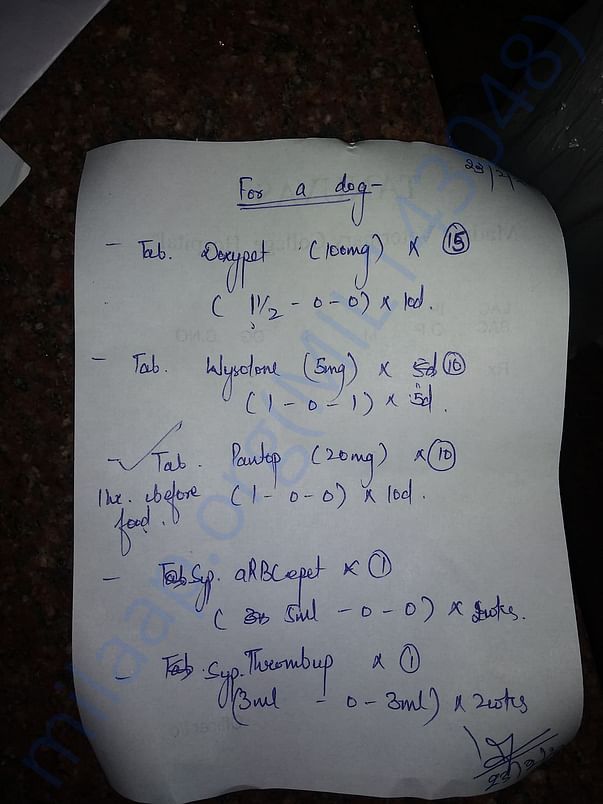 23/2/
For a dog-
- Tab. Doxypet (100mg) x 15
( 1 1/2 - 0 - 0) x 10d.
- Tab. Wysolone (5mg) x 5d 10
(1 - 0 - 1) x 5d.
- Tab. Pantop (20mg) x 10
1hr. before (1 - 0 - 0) x 10d.
food.
- Tab Syp. aRBCepet x 1
( 5ml - 0 - 0) x 2wks.
- Tab. Syp. Thrombup x 1
(3ml - 0 - 3ml) x 2wks
milaap.org(MIL143048)